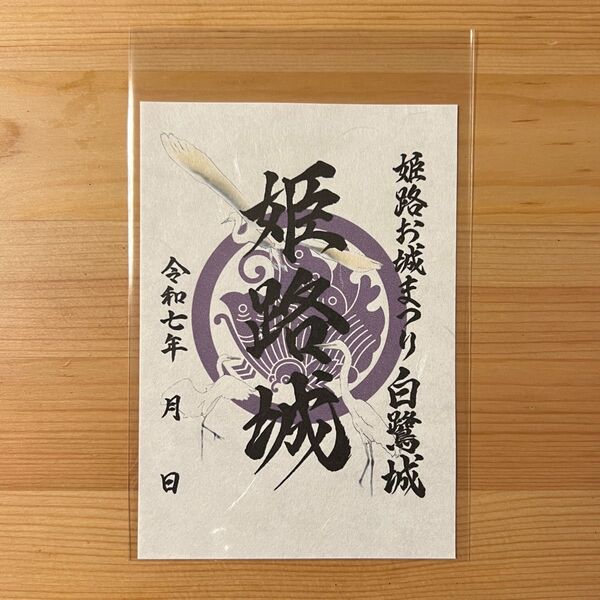 姫路お城まつり 白鷺城
姫路城
令和七年 月 日